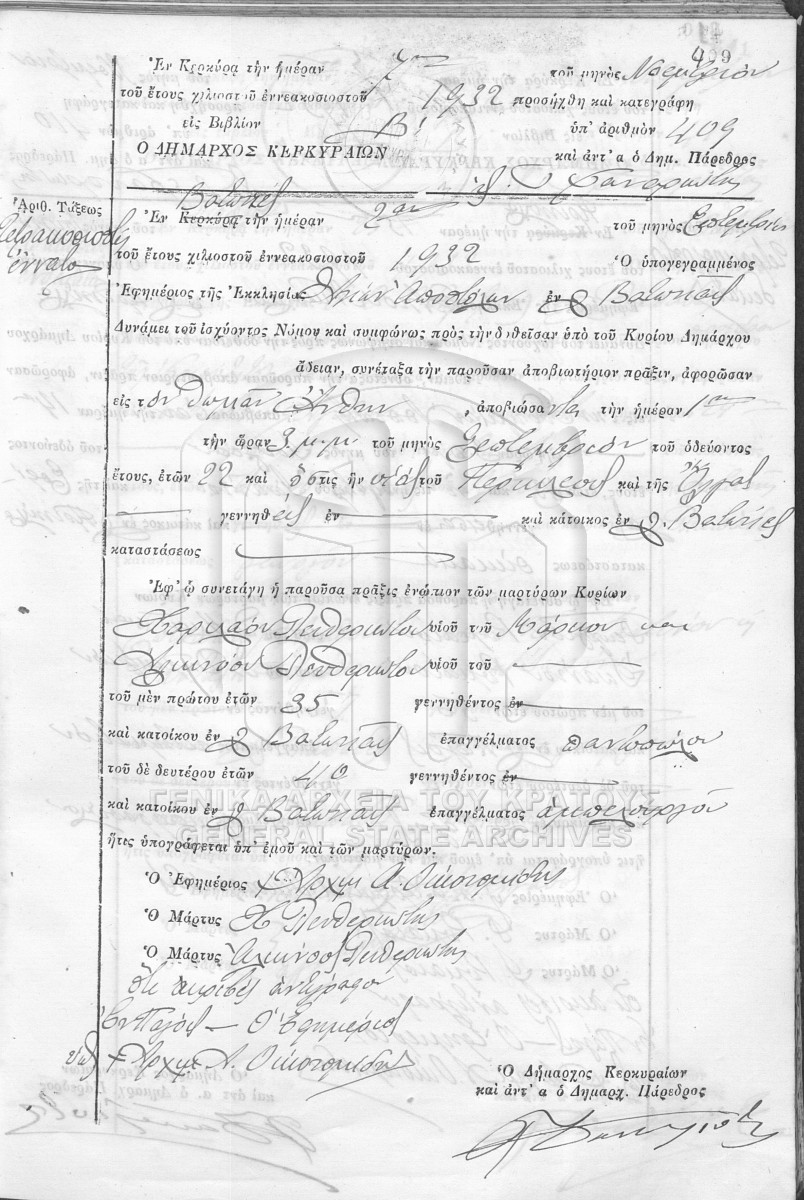 409
Ἐν Κερκύρᾳ τὴν ἡμέραν 7ην τοῦ μηνὸς Νοεμβρίου
τοῦ ἔτους χιλιοστοῦ ἐννεακοσιοστοῦ 1932 προσήχθη καὶ κατεγράφη
εἰς Βιβλίον Β! ὑπ' ἀριθμὸν 409
Ο ΔΗΜΑΡΧΟΣ ΚΕΡΚΥΡΑΙΩΝ καὶ ἀντ' α ὁ Δημ. Πάρεδρος
Ἀριθ. Τάξεως
Τετρακοσιοστὴ
ἐννάτη
Βατωνιες
Ἐν Κερκύρᾳ τὴν ἡμέραν 2αν τοῦ μηνὸς Σεπτεμβρίου
τοῦ ἔτους χιλιοστοῦ ἐννεακοσιοστοῦ 1932 Ὁ ὑπογεγραμμένος
Ἐφημέριος τῆς Ἐκκλησίας Ἁγίων Ἀποστόλων ἐν
Δυνάμει τοῦ ἰσχύοντος Νόμου καὶ συμφώνως πρὸς τὴν δοθεῖσαν ὑπὸ τοῦ Κυρίου Δημάρχου
ἄδειαν, συνέταξα τὴν παροῦσαν ἀποβιωτήριον πρᾶξιν, ἀφορῶσαν
εἰς τὸν Θωμᾶν , ἀποβιώσαντα τὴν ἡμέραν 1ην
τὴν ὥραν 3 μ.μ. τοῦ μηνὸς Σεπτεμβρίου τοῦ ὁδεύοντος
ἔτους, ἐτῶν 22 καὶ ὅστις ἦν υἱὸς τοῦ Περικλέους καὶ τῆς Ὄλγας
γεννηθεὶς ἐν καὶ κάτοικος ἐν
καταστάσεως
Ἐφ' ᾧ συνετάγη ἡ παροῦσα πρᾶξις ἐνώπιον τῶν μαρτύρων Κυρίων
Χαρίλαον Πενθερωτον υἱοῦ τοῦ Μάρκου και
Ἀλκινόον Πενθερωτον υἱοῦ τοῦ
τοῦ μὲν πρώτου ἐτῶν 35 γεννηθέντος ἐν
καὶ κατοίκου ἐν ἐπαγγέλματος παντοπώλου
τοῦ δὲ δευτέρου ἐτῶν 40 γεννηθέντος ἐν
καὶ κατοίκου ἐν ἐπαγγέλματος ἀμπελουργοῦ
ἥτις ὑπογράφεται ὑπ' ἐμοῦ καὶ τῶν μαρτύρων.
Ὁ Ἐφημέριος Ἀρχιμ. Α. Οἰκονομίδης
Ὁ Μάρτυς Χ Πενθερωτης
Ὁ Μάρτυς Ἀλκίνοος Πενθερωτης
Ὅτι ἀκριβὲς ἀντίγραφον
Ὁ Ἐφημέριος
Ἀρχιμ. Α. Οἰκονομίδης
Ὁ Δήμαρχος Κερκυραίων
καὶ ἀντ' α ὁ Δημαρχ. Πάρεδρος
ΓΕΝΙΚΑ ΑΡΧΕΙΑ ΤΟΥ ΚΡΑΤΟΥΣ
GENERAL STATE ARCHIVES